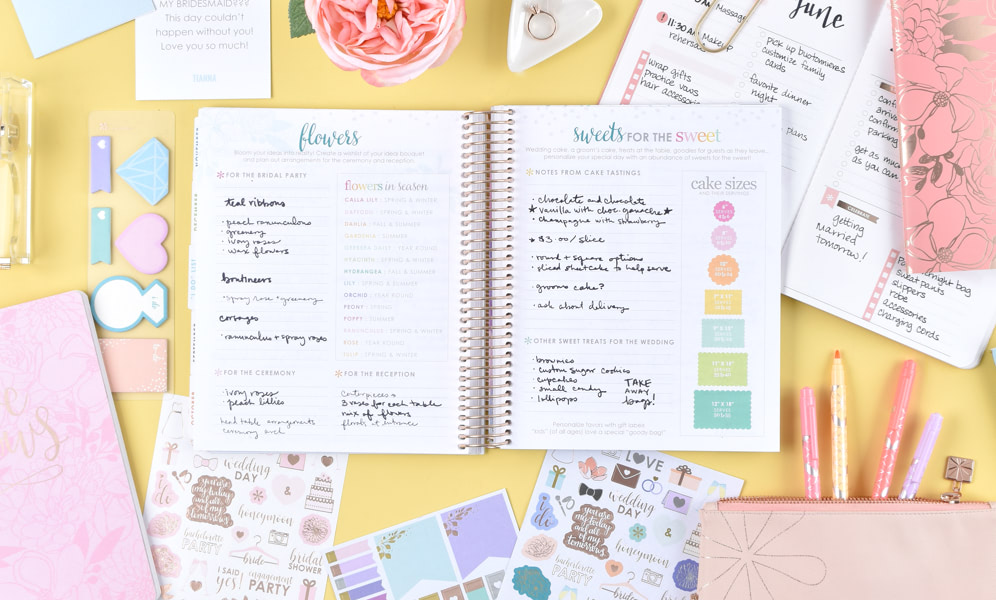 MY BRIDESMAID???
This day couldn't
happen without you!
Love you so much!
flowers
FOR THE BRIDAL PARTY
teal ribbons
· peach ranunculous
· greenery
· ivory roses
· wax flowers
boutineers
· spray rose + greenery
corsages
· ranunculus + spray roses
FOR THE CEREMONY
· ivory roses
· peach lillies
head table arrangements
ceremony arch
flowers in season
CALLA LILY : SPRING & WINTER
DAFFODIL : SPRING & WINTER
DAHLIA : FALL & SUMMER
GARDENIA : SUMMER
GERBERA DAISY : YEAR ROUND
HYDRANGEA : FALL & SUMMER
LILY : SPRING & SUMMER
ORCHID : YEAR ROUND
PEONY : SPRING
POPPY : SUMMER
RANUNCULUS : SPRING & WINTER
ROSE : YEAR ROUND
TULIP : SPRING & WINTER
FOR THE RECEPTION
centerpieces
3 vases for each table
mix of flowers
florals at entrance
sweets FOR THE sweet
Wedding cake, a groom's cake, treats at the table, goodies for guests as they leave...
personalize your special day with an abundance of sweets for the sweet!
NOTES FROM CAKE TASTINGS
· chocolate and chocolate
★ vanilla with choc ganache ★
· champagne with strawberry
★ $3.00/slice
· round + square options
· sliced shortcake to help serve
· grooms cake?
· ask about delivery
OTHER SWEET TREATS FOR THE WEDDING
· brownies
· custom sugar cookies
· cupcakes
· small candy
· lollipops
TAKE
AWAY
bags!
Personalize favors with gift labels
cake sizes
June
Massage
11:30 AM
Makeup
rehearsal
wrap gifts
practice vows
hair accessories
pick up
customize family
cards
favorite dinner
night
plans
parking
get as much
as you can
getting
Married
Tomorrow!
overnight bag
sweat pants
slippers
robe
accessories
charging cords
I do
wedding
DAY
you are
my today
and all
of my
tomorrows
&
honeymoon
bachelorette
PARTY
bride
bridal
SHOWER
I SAID
yes!
engagement
PARTY
LOVE
I do
wedding
DAY
you are
my today
and all
of my
tomorrows
&
honeymoon
bachelorette
PARTY
bride